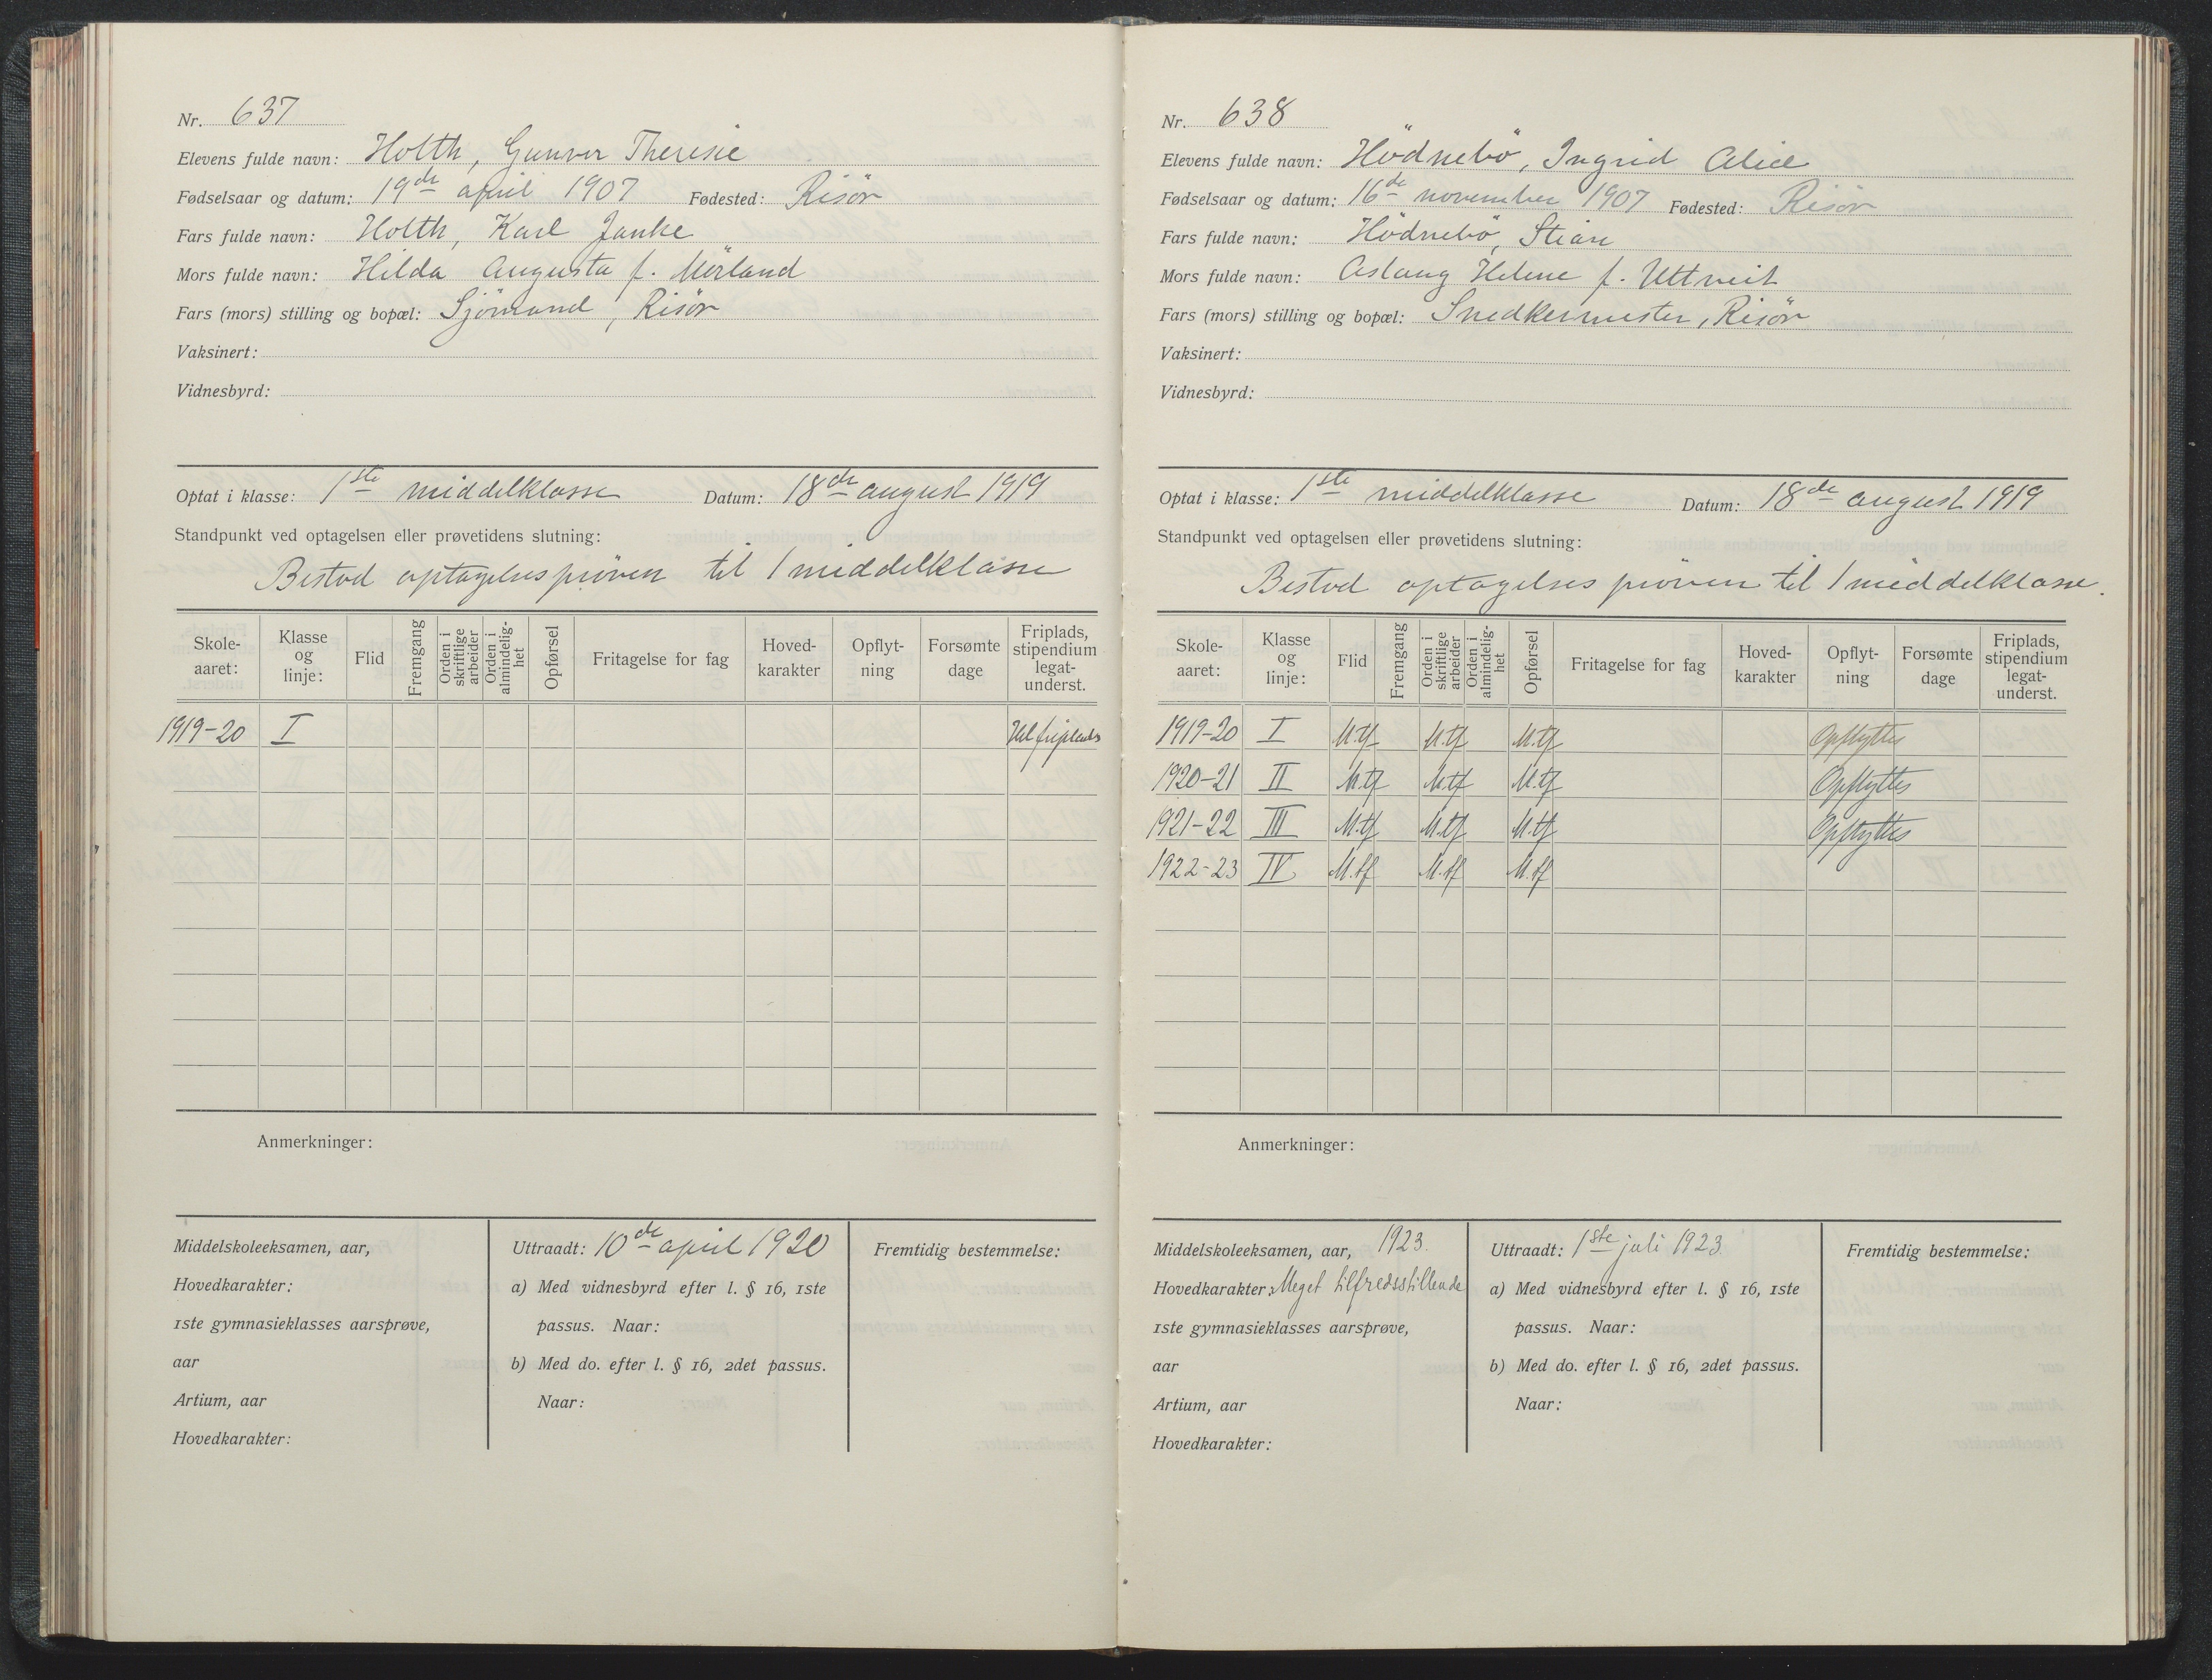 Nr. 637
Elevens fulde navn: Holth, Gunvor Theresie
Fødselsaar og datum: 19de april 1907 Fødested: Risör
Fars fulde navn: Holth, Karl Janke
Mors fulde navn: Hilda Augusta f. Mörland
Fars (mors) stilling og bopæl: Sjömand, Risör
Vaksinert:
Vidnesbyrd:
Optat i klasse: 1ste middelklasse Datum: 18de august 1919
Standpunkt ved optagelsen eller prøvetidens slutning:
Bestod optagelsespröven til 1 middelklasse
Skole-aaret: Klasse og linje: Flid Fremgang Orden i skriftlige arbeider Orden i almindelig-het Opførsel Fritagelse for fag Hoved-karakter Opflyt-ning Forsømte dage Friplads, stipendium legat-underst.
1919-20 I Hel friplads
Anmerkninger:
Middelskoleeksamen, aar,
Hovedkarakter:
1ste gymnasieklasses aarsprøve,
aar
Artium, aar
Hovedkarakter:
Uttraadt: 10de april 1920
a) Med vidnesbyrd efter l. § 16, 1ste
passus. Naar:
b) Med do. efter l. § 16, 2det passus.
Naar:
Fremtidig bestemmelse:
Nr. 638
Elevens fulde navn: Hödnebö, Ingrid Alice
Fødselsaar og datum: 16de november 1907 Fødested: Risör
Fars fulde navn: Hödnebö, Stian
Mors fulde navn: Aslaug Helene f. Uttveit
Fars (mors) stilling og bopæl: Snedkermester, Risör
Vaksinert:
Vidnesbyrd:
Optat i klasse: 1ste middelklasse Datum: 18de august 1919
Standpunkt ved optagelsen eller prøvetidens slutning:
Bestod optagelsespröven til 1 middelklasse.
Skole-aaret: Klasse og linje: Flid Fremgang Orden i skriftlige arbeider Orden i almindelig-het Opførsel Fritagelse for fag Hoved-karakter Opflyt-ning Forsømte dage Friplads, stipendium legat-underst.
1919-20 I M.tf M.tf M.tf Opflyttes
1920-21 II M.tf M.tf M.tf Opflyttes
1921-22 III M.tf M.tf M.tf Opflyttes
1922-23 IV M.tf M.tf M.tf
Anmerkninger:
Middelskoleeksamen, aar, 1923.
Hovedkarakter: Meget tilfredsstillende
1ste gymnasieklasses aarsprøve,
aar
Artium, aar
Hovedkarakter:
Uttraadt: 1ste juli 1923.
a) Med vidnesbyrd efter l. § 16, 1ste
passus. Naar:
b) Med do. efter l. § 16, 2det passus.
Naar:
Fremtidig bestemmelse: